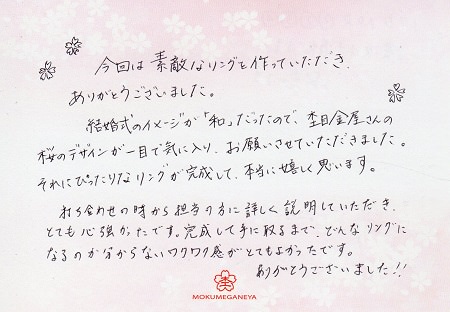 今回は素敵なリングを作っていただき、
ありがとうございました。
結婚式のイメージが「和」だったので、杢目金屋さんの
桜のデザインが一目で気に入り、お願いさせていただきました。
それにぴったりなリングが完成して、本当に嬉しく思います。
打ち合わせの時から担当の方に詳しく説明していただき、
とても心強かったです。完成して手に取るまで、どんなリングに
なるのか分からないワクワク感がとてもよかったです。
ありがとうございました!!
杢
MOKUMEGANEYA